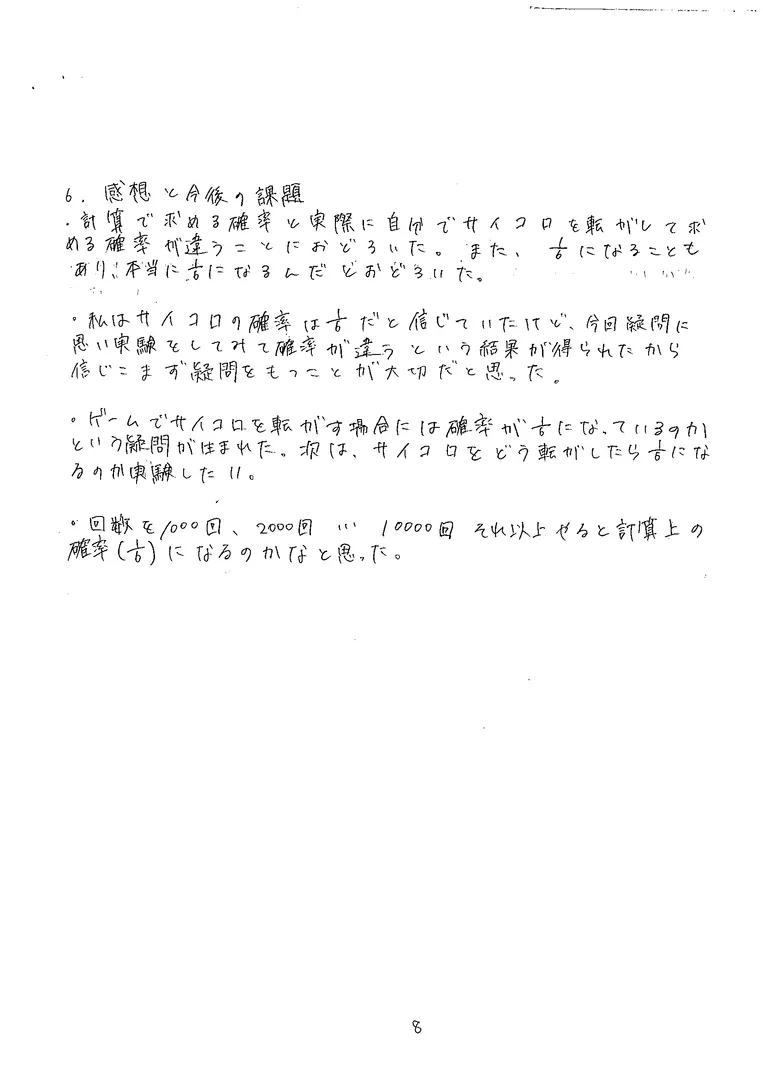 6. 感想と今後の課題
・計算で求める確率と実際に自分でサイコロを転がして求
める確率が違うことにおどろいた。また、1/6になることも
あり、本当に1/6になるんだとおどろいた。
・私はサイコロの確率は1/6だと信じていたけど、今回疑問に
思い実験をしてみて確率が違うという結果が得られたから
信じこまず疑問をもつことが大切だと思った。
・ゲームでサイコロを転がす場合には確率が1/6になっているのか
という疑問が生まれた。次は、サイコロをどう転がしたら1/6にな
るのか実験したい。
・回数を1000回、2000回 … 10000回 それ以上やると計算上の
確率(1/6)になるのかなと思った。
8